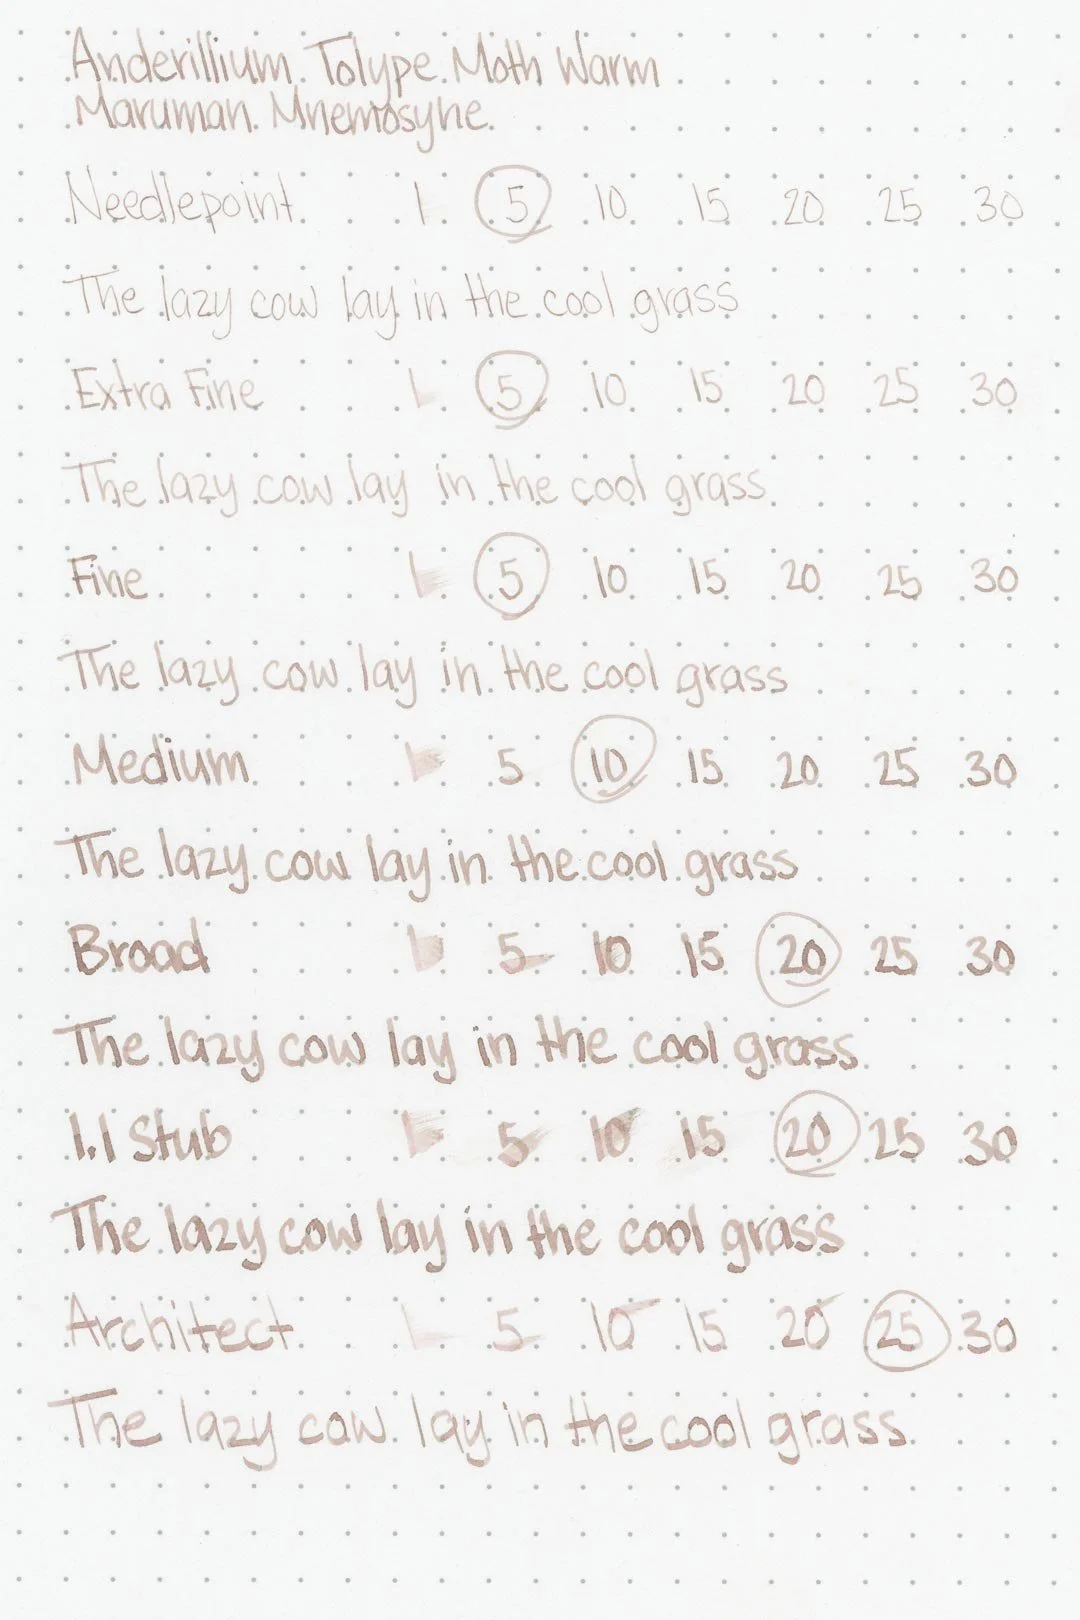 Anderillium Tolype Moth Warm
Maruman Mnemosyne
Needlepoint 1 5 10 15 20 25 30
The lazy cow lay in the cool grass
Extra Fine 1 5 10 15 20 25 30
The lazy cow lay in the cool grass
Fine 1 5 10 15 20 25 30
The lazy cow lay in the cool grass
Medium 1 5 10 15 20 25 30
The lazy cow lay in the cool grass
Broad 1 5 10 15 20 25 30
The lazy cow lay in the cool grass
1.1 Stub 1 5 10 15 20 25 30
The lazy cow lay in the cool grass
Architect 1 5 10 15 20 25 30
The lazy cow lay in the cool grass